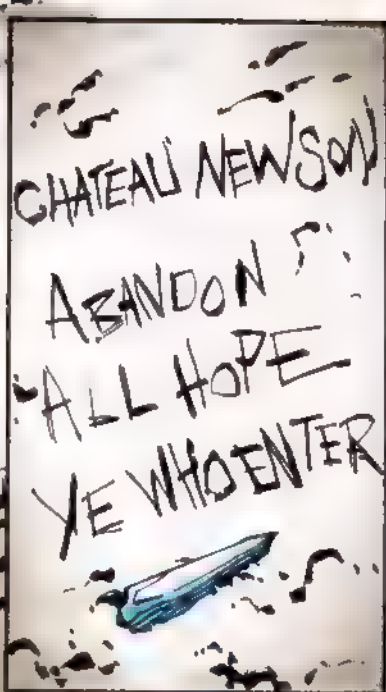 CHATEAU NEWSON
ABANDON
ALL HOPE
YE WHO ENTER